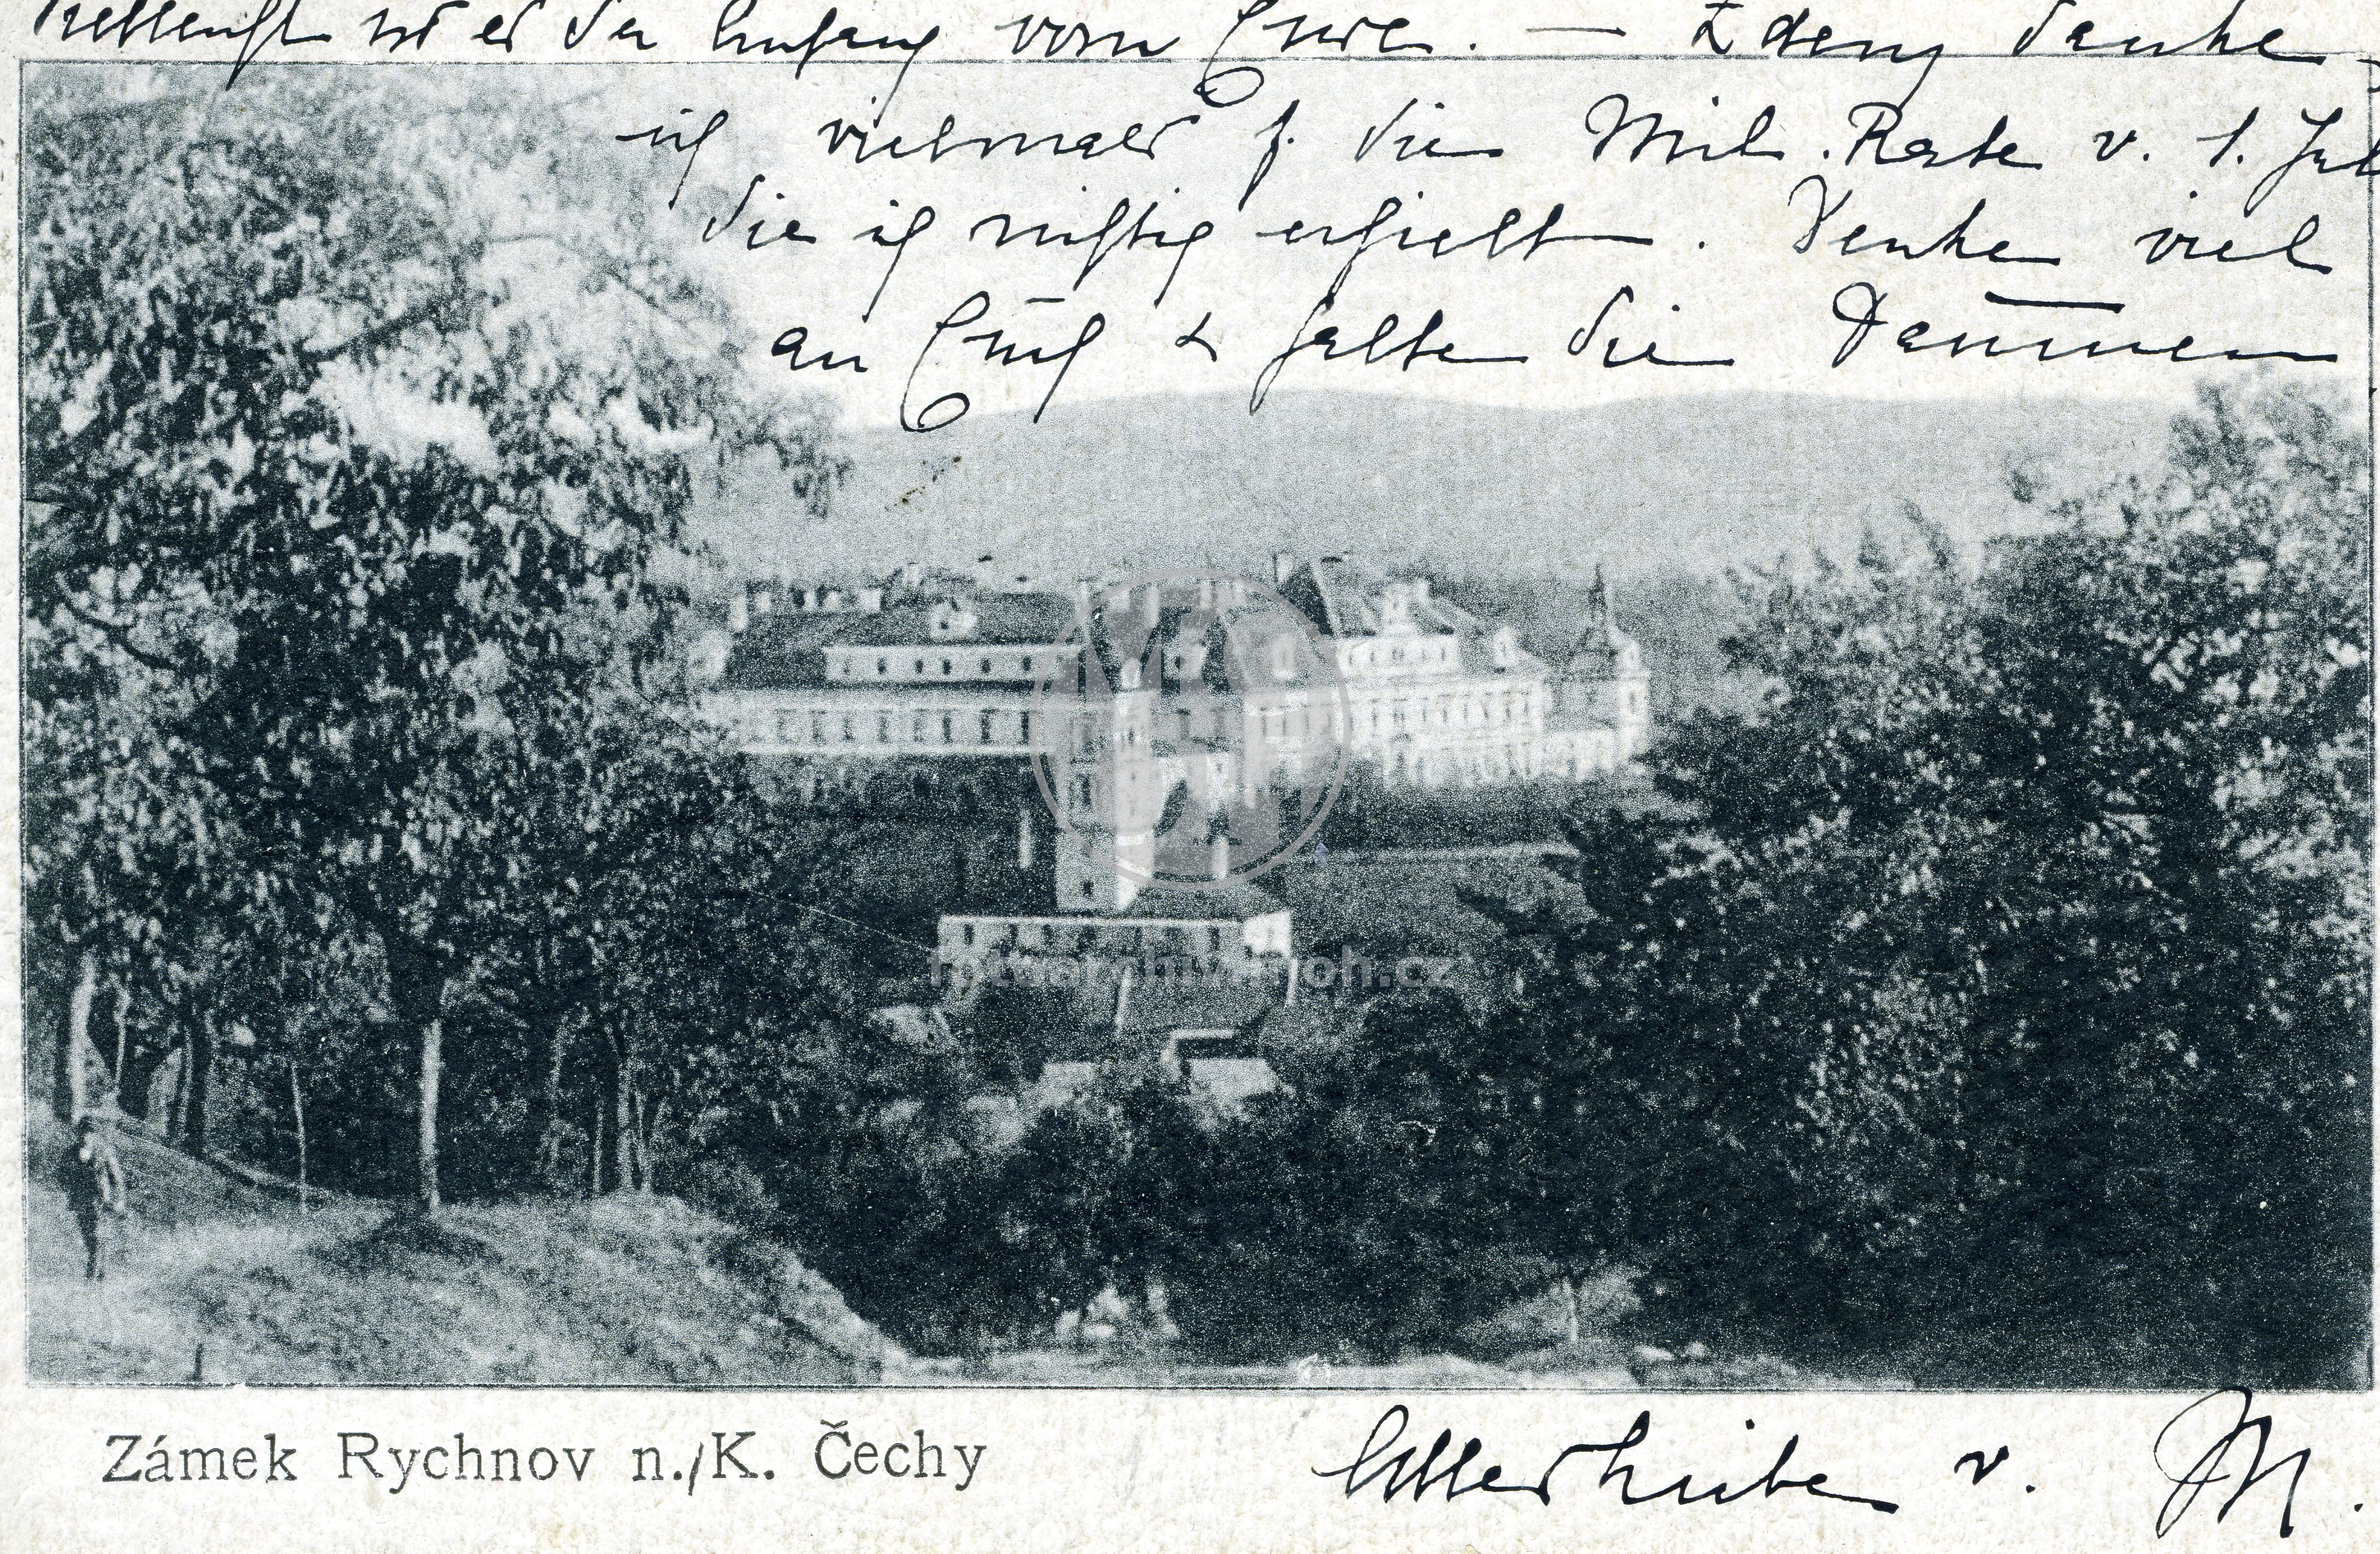 vielleicht ist es der Anfang vom Ende. — Zdeny danke
ich vielmals f. die Mil. Rate v. 1. Jul
die ich richtig erhielt. Denke viel
an Euch & halte die Daumen
fotoarchivmoh.cz
Zámek Rychnov n./K. Čechy
Alles Liebe v. M.